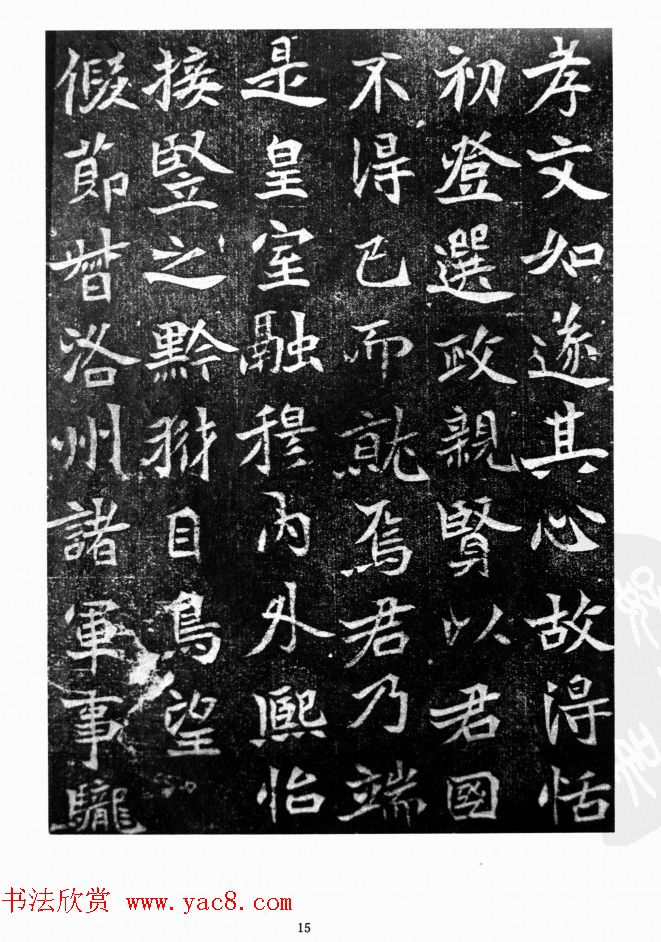 孝文如遂其心故得恬
初登選政親賢以君國
不得已而就焉君乃端
是皇室融穆內外熙怡
接豎之黔豺目鳥望
假節督洛州諸軍事䮾
书法欣赏 www.yac8.com
15